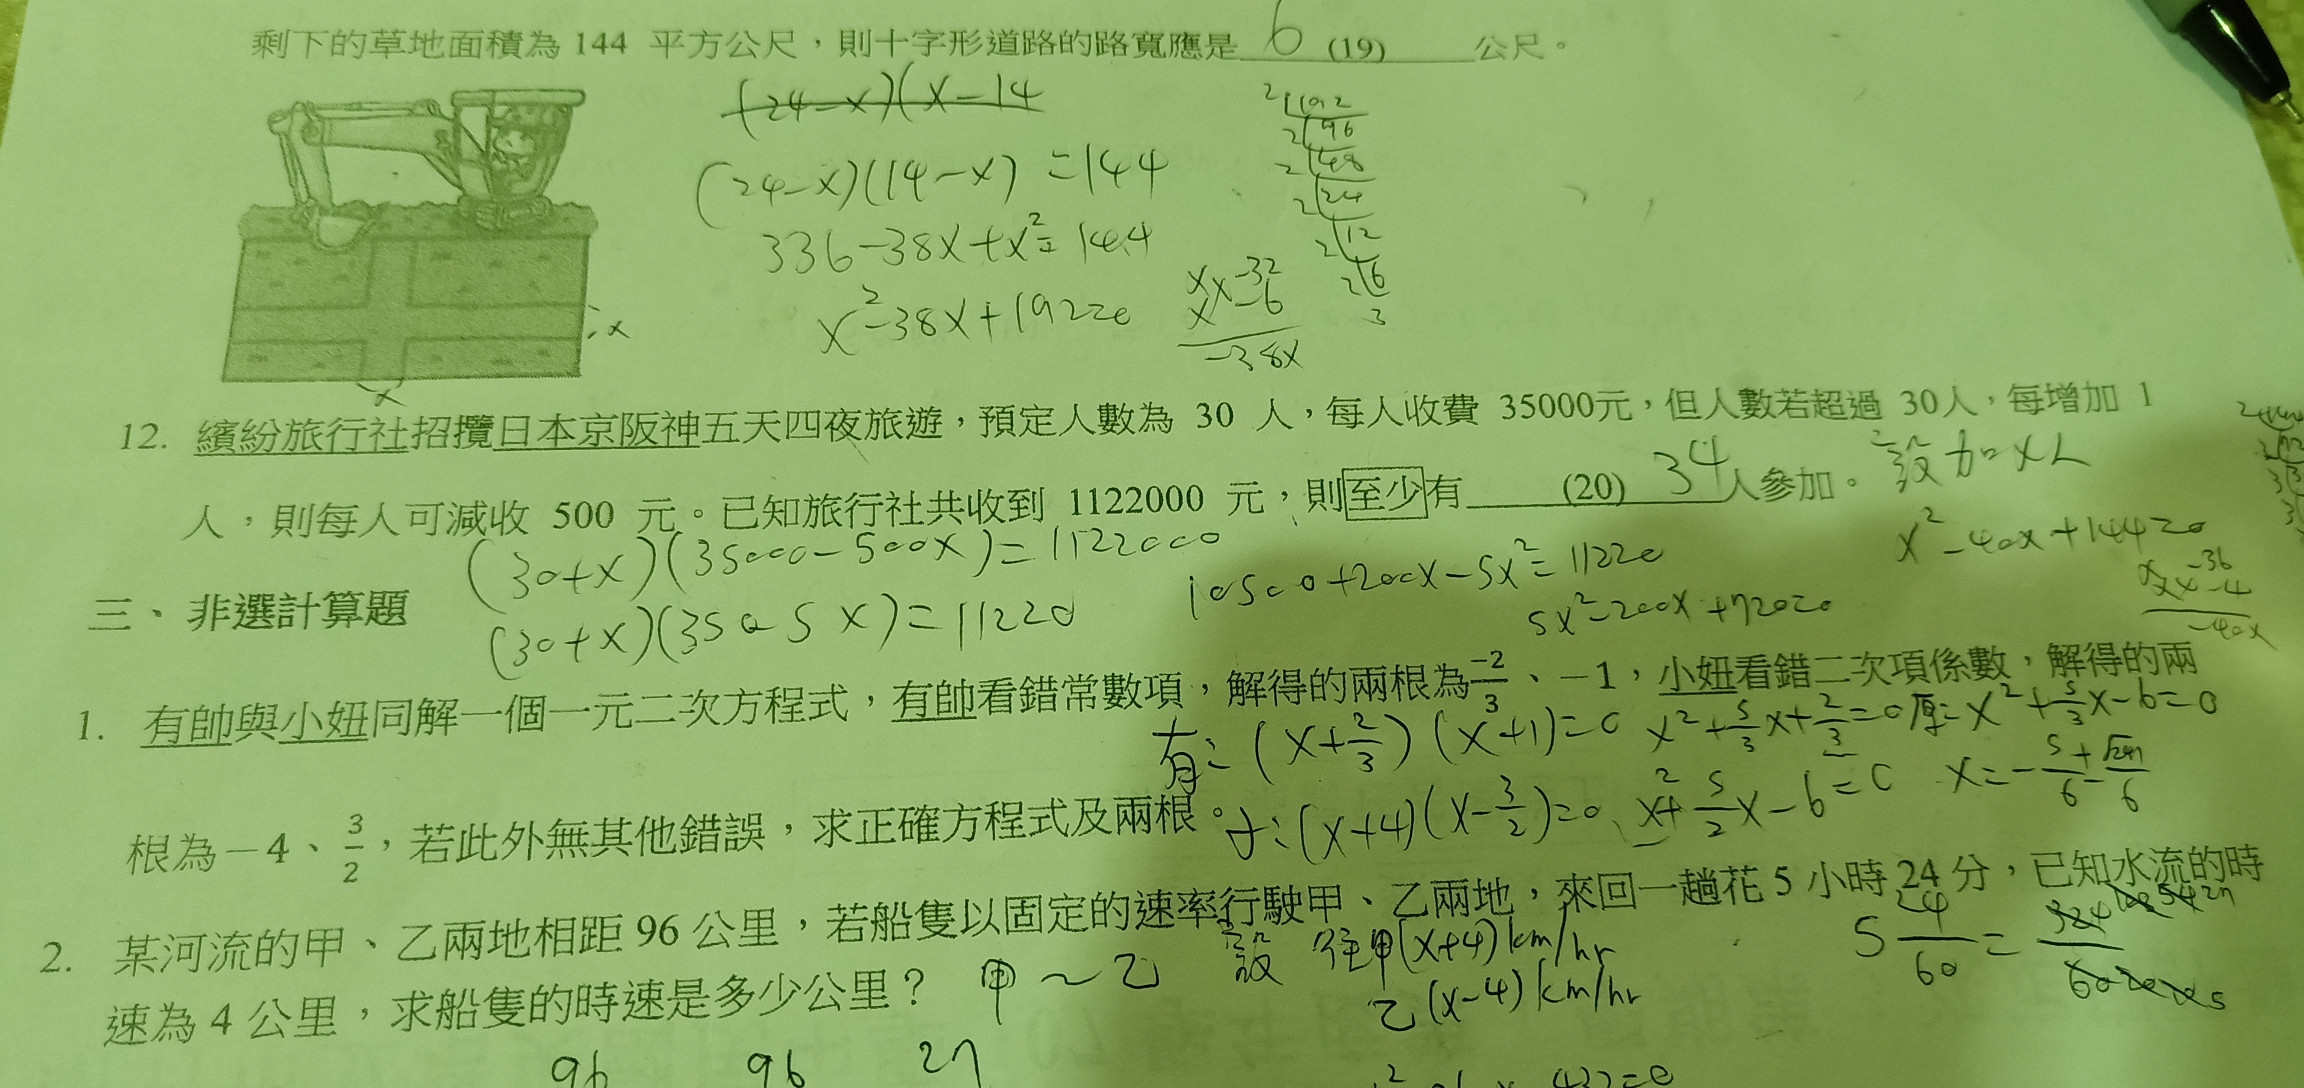 剩下的草地面積為 144 平方公尺，則十字形道路的路寬應是 6 (19) 公尺。
(24-x)(x-14
(24-x)(14-x) =144
336-38x+x²=144
x²-38x+192=0
x -32
x -6
-38x
2 192
2 96
2 48
2 24
2 12
2 6
3
x
x
12. 繽紛旅行社招攬日本京阪神五天四夜旅遊，預定人數為 30 人，每人收費 35000元，但人數若超過 30人，每增加 1
人，則每人可減收 500 元。已知旅行社共收到 1122000 元，則至少有 (20) 34 人參加。
設加x人
(30+x)(35000-500x)=1122000
(30+x)(350-5x)=11220
10500+200x-5x²=11220
5x²-200x+720=0
x²-40x+144=0
x -36
x -4
-40x
三、非選計算題
1. 有帥與小妞同解一個一元二次方程式，有帥看錯常數項，解得的兩根為 -2/3、－1，小妞看錯二次項係數，解得的兩
有：(x+2/3)(x+1)=0 x²+5/3x+2/3=0 原：x²+5/3x-6=0
根為－4、3/2，若此外無其他錯誤，求正確方程式及兩根。
小：(x+4)(x-3/2)=0 x²+5/2x-6=0
2. 某河流的甲、乙兩地相距 96 公里，若船隻以固定的速率行駛甲、乙兩地，來回一趟花 5 小時 24 分，已知水流的時
速為 4 公里，求船隻的時速是多少公里？
甲～乙
設 往甲(x+4)km/hr
乙(x-4)km/hr
5 24/60 = 324 108 54 27
60 20 10 5
96 96 27